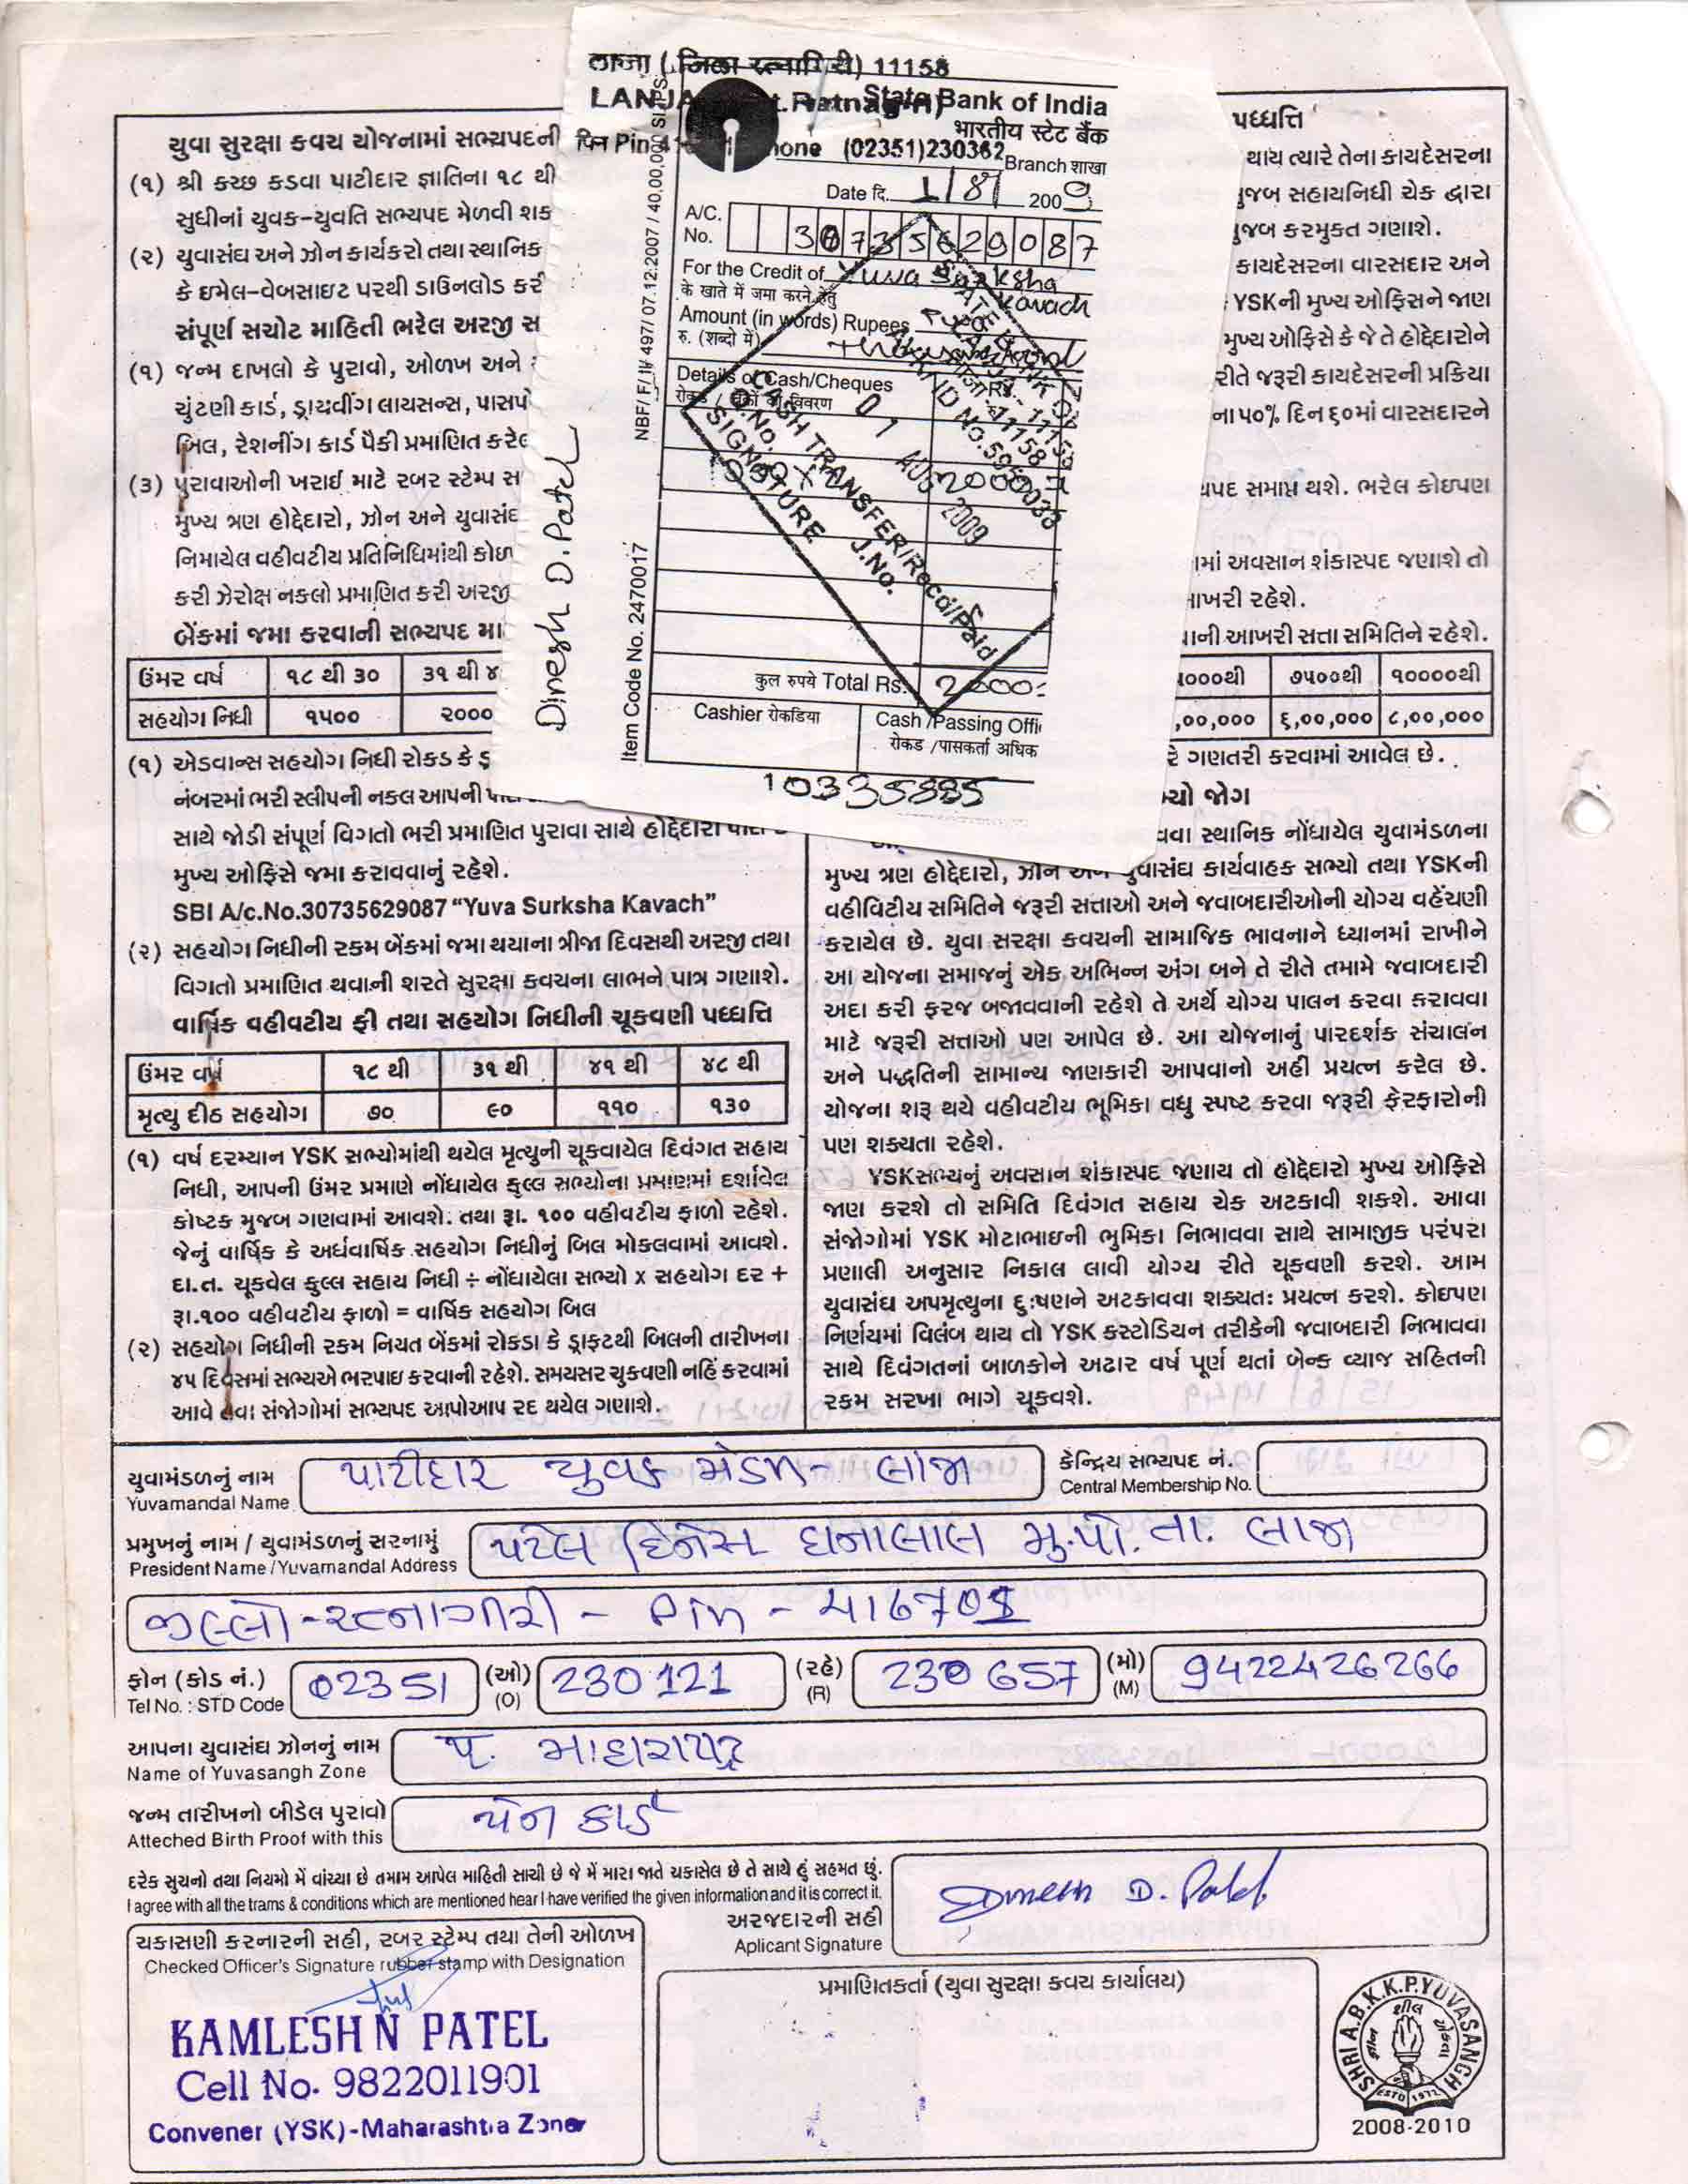 लांजा (जिला रत्नागिरी) 11158
State Bank of India
भारतीय स्टेट बैंक
Phone (02351)230362
Branch शाखा
Date दि. 1/8/2009
A/C. No. 30735629087
For the Credit of Yuva Surksha Kavach
के खाते में जमा करने हेतु
Amount (in words) Rupees
रु. (शब्दो में)
Details of Cash/Cheques
01 AUG 2009
CASH TRANSFER/Recd/Paid
J.No.
SIGNATURE
कुल रुपये Total Rs. 2000=
Cashier रोकडिया
Cash /Passing Offi
रोकड /पासकर्ता अधिक
10335885
NBF/ F/ II/ 497/ 07.12.2007 / 40,00,000 SLIPS
Item Code No. 2470017
Dinesh D. Patel
યુવા સુરક્ષા કવચ યોજનામાં સભ્યપદની
(૧) શ્રી કચ્છ કડવા પાટીદાર જ્ઞાતિના ૧૮ થી
સુધીનાં યુવક-યુવતિ સભ્યપદ મેળવી શક
(૨) યુવાસંઘ અને ઝોન કાર્યકરો તથા સ્થાનિક
કે ઇમેલ-વેબસાઇટ પરથી ડાઉનલોડ કરી
સંપૂર્ણ સચોટ માહિતી ભરેલ અરજી સ
(૧) જન્મ દાખલો કે પુરાવો, ઓળખ અને
ચુંટણી કાર્ડ, ડ્રાયવીંગ લાયસન્સ, પાસપ
બિલ, રેશનીંગ કાર્ડ પૈકી પ્રમાણિત કરેલ
(૩) પુરાવાઓની ખરાઈ માટે રબર સ્ટેમ્પ સ
મુખ્ય ત્રણ હોદ્દેદારો, ઝોન અને યુવાસંઘ
નિમાયેલ વહીવટીય પ્રતિનિધિમાંથી કોઇ
કરી ઝેરોક્ષ નકલો પ્રમાણિત કરી અરજી
બેંકમાં જમા કરવાની સભ્યપદ મા
ઉંમર વર્ષ ૧૮ થી ૩૦ ૩૧ થી ૪
સહયોગ નિધી ૧૫૦૦ ૨૦૦૦
(૧) એડવાન્સ સહયોગ નિધી રોકડ કે ડ્ર
નંબરમાં ભરી સ્લીપની નકલ આપની
સાથે જોડી સંપૂર્ણ વિગતો ભરી પ્રમાણિત પુરાવા સાથે હોદ્દેદારો
મુખ્ય ઓફિસે જમા કરાવવાનું રહેશે.
SBI A/c.No.30735629087 “Yuva Surksha Kavach”
(૨) સહયોગ નિધીની રકમ બેંકમાં જમા થયાના ત્રીજા દિવસથી અરજી તથા
વિગતો પ્રમાણિત થવાની શરતે સુરક્ષા કવચના લાભને પાત્ર ગણાશે.
વાર્ષિક વહીવટીય ફી તથા સહયોગ નિધીની ચૂકવણી પધ્ધતિ
ઉંમર વર્ષ ૧૮ થી ૩૧ થી ૪૧ થી ૪૮ થી
મૃત્યુ દીઠ સહયોગ ૭૦ ૯૦ ૧૧૦ ૧૩૦
(૧) વર્ષ દરમ્યાન YSK સભ્યોમાંથી થયેલ મૃત્યુની ચૂકવાયેલ દિવંગત સહાય
નિધી, આપની ઉંમર પ્રમાણે નોંધાયેલ કુલ્લ સભ્યોના પ્રમાણમાં દર્શાવેલ
કોષ્ટક મુજબ ગણવામાં આવશે. તથા રૂા. ૧૦૦ વહીવટીય ફાળો રહેશે.
જેનું વાર્ષિક કે અર્ધવાર્ષિક સહયોગ નિધીનું બિલ મોકલવામાં આવશે.
દા.ત. ચૂકવેલ કુલ્લ સહાય નિધી ÷ નોંધાયેલા સભ્યો x સહયોગ દર +
રૂા.૧૦૦ વહીવટીય ફાળો = વાર્ષિક સહયોગ બિલ
(૨) સહયોગ નિધીની રકમ નિયત બેંકમાં રોકડા કે ડ્રાફટથી બિલની તારીખના
૪૫ દિવસમાં સભ્યએ ભરપાઇ કરવાની રહેશે. સમયસર ચુકવણી નહિં કરવામાં
આવે તેવા સંજોગોમાં સભ્યપદ આપોઆપ રદ થયેલ ગણાશે.
પધ્ધતિ
થાય ત્યારે તેના કાયદેસરના
મુજબ સહાયનિધી ચેક દ્વારા
મુજબ કરમુક્ત ગણાશે.
કાયદેસરના વારસદાર અને
YSKની મુખ્ય ઓફિસને જાણ
મુખ્ય ઓફિસે કે જે તે હોદ્દેદારોને
રીતે જરૂરી કાયદેસરની પ્રક્રિયા
ના ૫૦% દિન ૬૦માં વારસદારને
યપદ સમાપ્ત થશે. ભરેલ કોઇપણ
ામાં અવસાન શંકાસ્પદ જણાશે તો
આખરી રહેશે.
ાની આખરી સત્તા સમિતિને રહેશે.
૫૦૦૦થી ૭૫૦૦થી ૧૦૦૦૦થી
,૦૦,૦૦૦ ૬,૦૦,૦૦૦ ૮,૦૦,૦૦૦
રે ગણતરી કરવામાં આવેલ છે.
વ્યો જોગ
વવા સ્થાનિક નોંધાયેલ યુવામંડળના
મુખ્ય ત્રણ હોદ્દેદારો, ઝોન અને યુવાસંઘ કાર્યવાહક સભ્યો તથા YSKની
વહીવિટીય સમિતિને જરૂરી સત્તાઓ અને જવાબદારીઓની યોગ્ય વહેંચણી
કરાયેલ છે. યુવા સરક્ષા કવચની સામાજિક ભાવનાને ધ્યાનમાં રાખીને
આ યોજના સમાજનું એક અભિન્ન અંગ બને તે રીતે તમામે જવાબદારી
અદા કરી ફરજ બજાવવાની રહેશે તે અર્થે યોગ્ય પાલન કરવા કરાવવા
માટે જરૂરી સત્તાઓ પણ આપેલ છે. આ યોજનાનું પારદર્શક સંચાલન
અને પદ્ધતિની સામાન્ય જાણકારી આપવાનો અહી પ્રયત્ન કરેલ છે.
યોજના શરૂ થયે વહીવટીય ભૂમિકા વધુ સ્પષ્ટ કરવા જરૂરી ફેરફારોની
પણ શક્યતા રહેશે.
YSKસભ્યનું અવસાન શંકાસ્પદ જણાય તો હોદ્દેદારો મુખ્ય ઓફિસે
જાણ કરશે તો સમિતિ દિવંગત સહાય ચેક અટકાવી શકશે. આવા
સંજોગોમાં YSK મોટાભાઇની ભુમિકા નિભાવવા સાથે સામાજીક પરંપરા
પ્રણાલી અનુસાર નિકાલ લાવી યોગ્ય રીતે ચૂકવણી કરશે. આમ
યુવાસંઘ અપમૃત્યુના દુઃષણને અટકાવવા શક્યતઃ પ્રયત્ન કરશે. કોઇપણ
નિર્ણયમાં વિલંબ થાય તો YSK કસ્ટોડિયન તરીકેની જવાબદારી નિભાવવા
સાથે દિવંગતનાં બાળકોને અઢાર વર્ષ પૂર્ણ થતાં બેન્ક વ્યાજ સહિતની
રકમ સરખા ભાગે ચૂકવશે.
યુવામંડળનું નામ પાટીદાર યુવક મંડળ - લાંજા
Yuvamandal Name
કેન્દ્રિય સભ્યપદ નં.
Central Membership No.
પ્રમુખનું નામ / યુવામંડળનું સરનામું પટેલ દિનેસ ધનાલાલ મુ.પો. તા. લાંજા
President Name / Yuvamandal Address
જીલ્લો - રત્નાગીરી - Pin - 416701
ફોન (કોડ નં.) 02351 (ઓ) 230121 (રહે) 230657 (મો) 9422426266
Tel No. : STD Code (O) (R) (M)
આપના યુવાસંઘ ઝોનનું નામ પ. માહારાષ્ટ્ર
Name of Yuvasangh Zone
જન્મ તારીખનો બીડેલ પુરાવો પેન કાર્ડ
Atteched Birth Proof with this
દરેક સુચનો તથા નિયમો મેં વાંચ્યા છે તમામ આપેલ માહિતી સાચી છે જે મેં મારા જાતે ચકાસેલ છે તે સાથે હું સહમત છું.
I agree with all the trams & conditions which are mentioned hear I have verified the given information and it is correct it.
અરજદારની સહી
Aplicant Signature
Dinesh D. Patel
ચકાસણી કરનારની સહી, રબર સ્ટેમ્પ તથા તેની ઓળખ
Checked Officer's Signature rubber stamp with Designation
KAMLESH N PATEL
Cell No. 9822011901
Convener (YSK)-Maharashtra Zone
પ્રમાણિતકર્તા (યુવા સુરક્ષા કવચ કાર્યાલય)
SHRI A.B.K.K.P. YUVASANGH
ESTD 1977
2008-2010